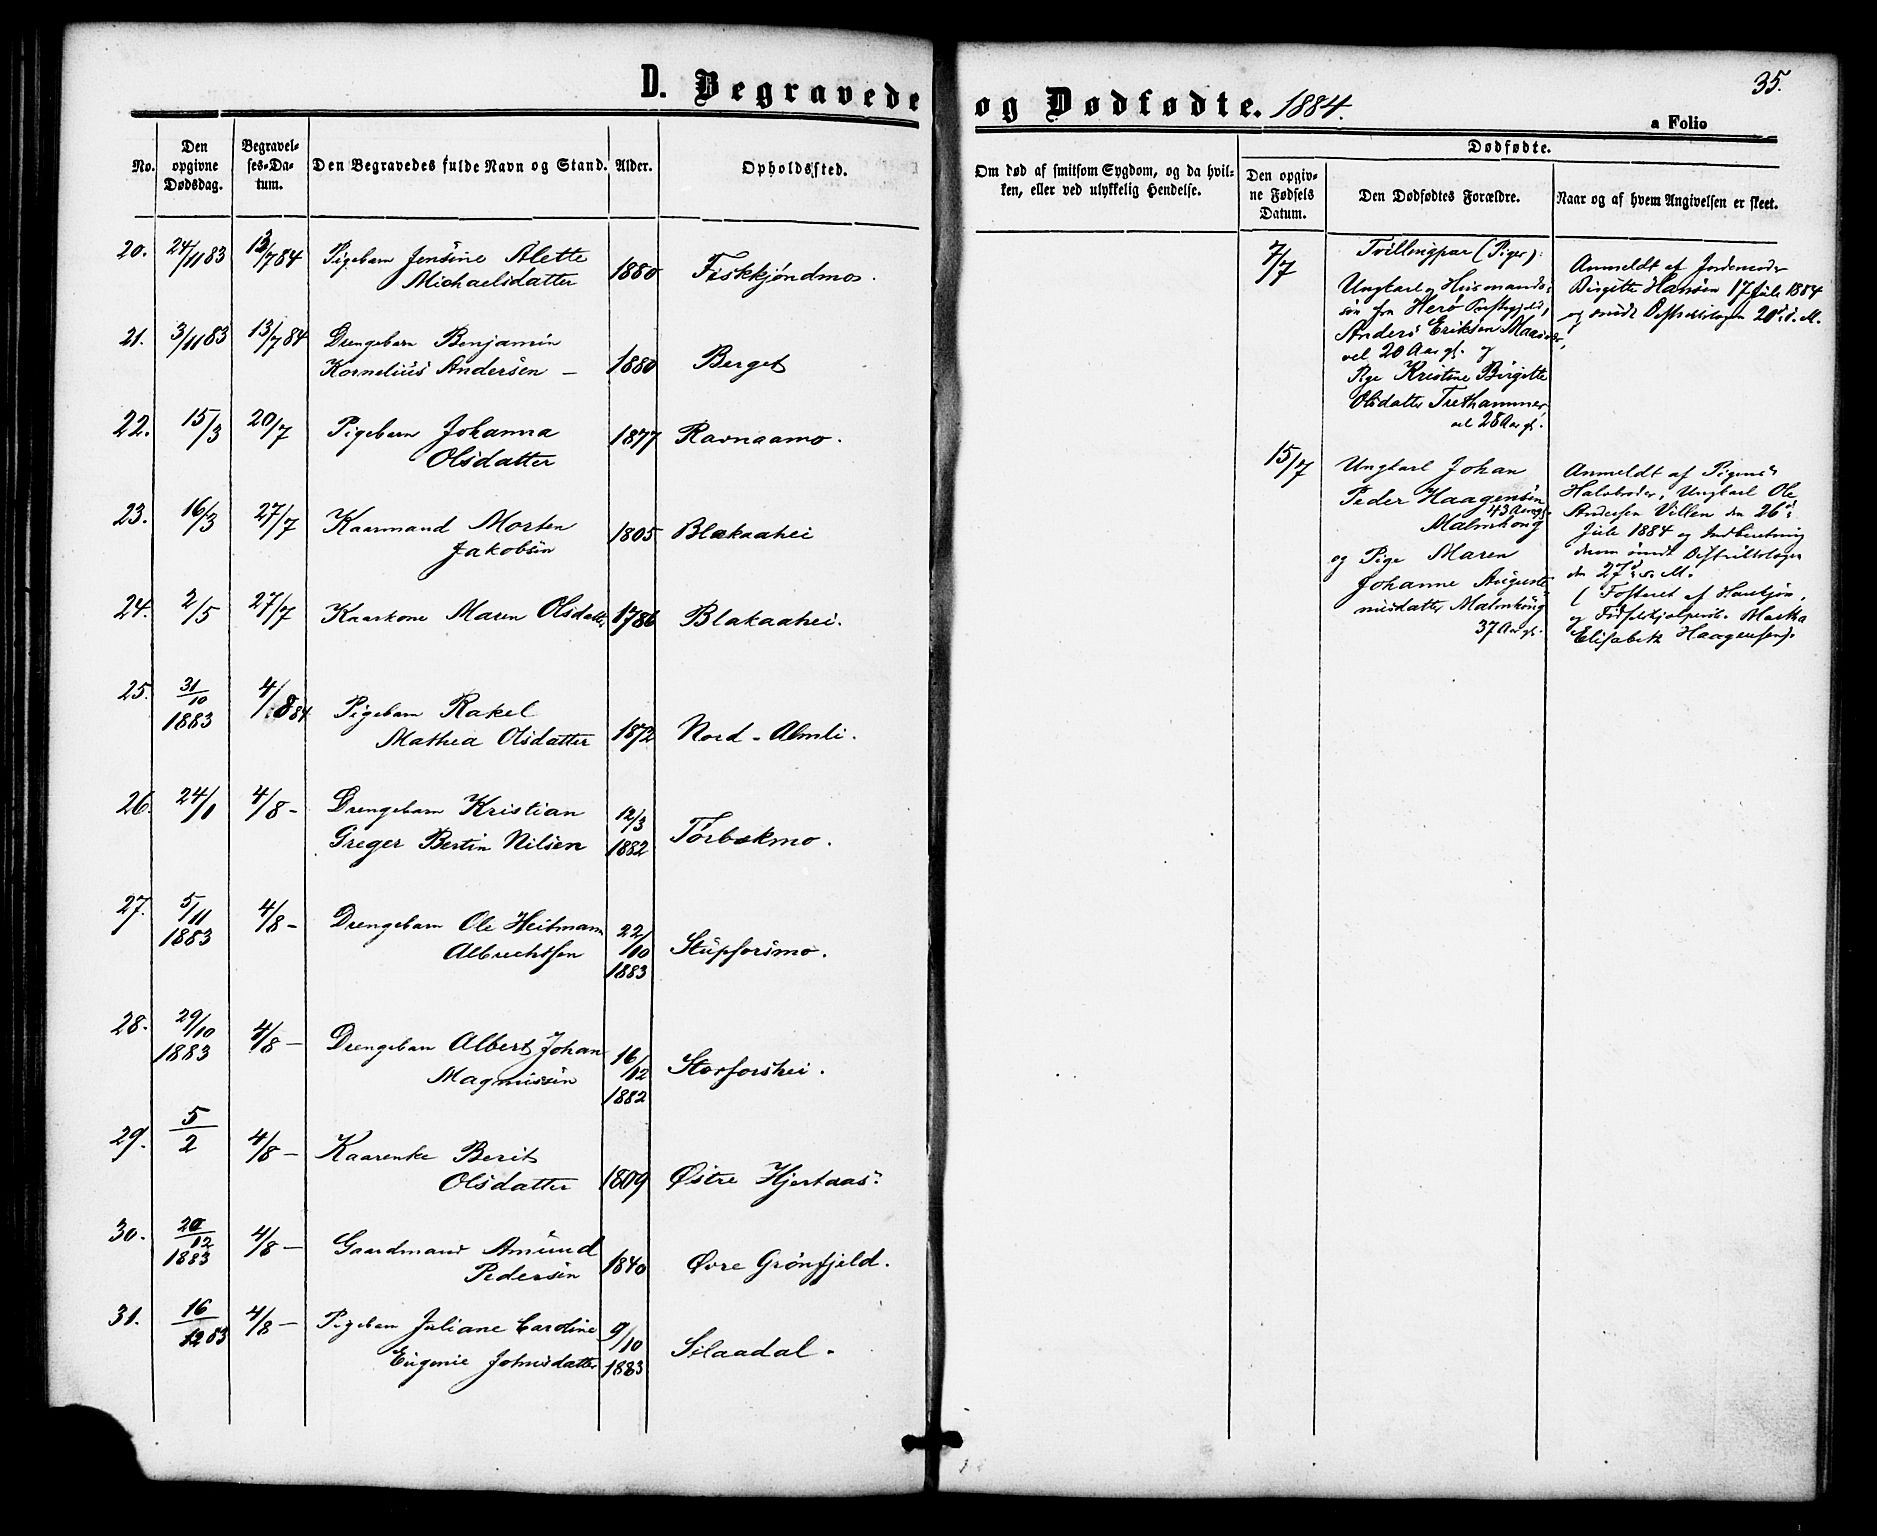 D. Begravede
No.
Den opgivne Dødsdag.
Begravelses-Datum.
Den Begravedes fulde Navn og Stand.
Alder.
Opholdssted.
20. 24/11 83 13/7 84 Pigebarn Jensine Alette 1880 Fiskkjøndmo.
Michaelsdatter
21. 3/11 83 13/7 84 Drengebarn Benjamin 1880 Berget
Kornelius Andersen –
22. 15/3 20/7 Pigebarn Johanna 1877 Ravnaamo.
Olsdatter
23. 16/3 27/7 Kaarmand Morten 1805 Blakaahei
Jakobsen
24. 2/5 27/7 Kaarkone Maren Olsdatter 1786 Blakaahei.
25. 31/10 1883 4/8 84 Pigebarn Rakel 1872 Nord-Almli.
Mathea Olsdatter
26. 24/1 4/8 – Drengebarn Kristian 12/3 1882 Tørbækmo.
Greger Bertin Nilsen
27. 5/11 1883 4/8 – Drengebarn Ole Heitmann 22/10 1883 Stupforsmo.
Albrechtsen
28. 29/10 1883 4/8 – Drengebarn Albert Johan 16/12 1882 Storforshei.
Magnussen
29. 5/2 4/8 – Kaarenke Berit 1809 Østre Hjertaas.
Olsdatter
30. 20/12 1883 4/8 – Gaardmand Amund 1840 Øvre Grønfjeld.
Pedersen
31. 16/12 83 4/8 – Pigebarn Juliane Caroline 9/10 1883 Silaadal.
Eugenie Johnsdatter
og Dødfødte. 1884.
35.
a Folio
Om død af smitsom Sygdom, og da hvilken, eller ved ulykkelig Hendelse.
Dødfødte.
Den opgivne Fødsels Datum.
Den Dødfødtes Forældre.
Naar og af hvem Angivelsen er skeet.
7/7
Tvillingpar (Piger):
Ungkarl og Husmands-
søn fra Herø Præstegjeld,
Anders Eriksen
vel 20 Aar gl. og
Pige Kristine Birgitte
Olsdatter Trethammer,
vel 28 Aar gl.
Anmeldt af Jordemoder
Birgitte Hansen 17 Juli 1884
og sendt Distriktslægen 20de s. M.
15/7
Ungkarl Johan
Peder Haagensen
43 Aar gl.
Malmhaug
og Pige Maren
Johanne Auguste
Malmhaug
37 Aar gl.
Anmeldt af Pigens
Halvbroder, Ungkarl Ole
Andersen Villen den 26de
Juli 1884 og Indberetning
derom sendt Distriktslægen
den 27de s. M.
(Fosteret af
og Fødselshjælperske Martha
Elisabeth Haagensen).